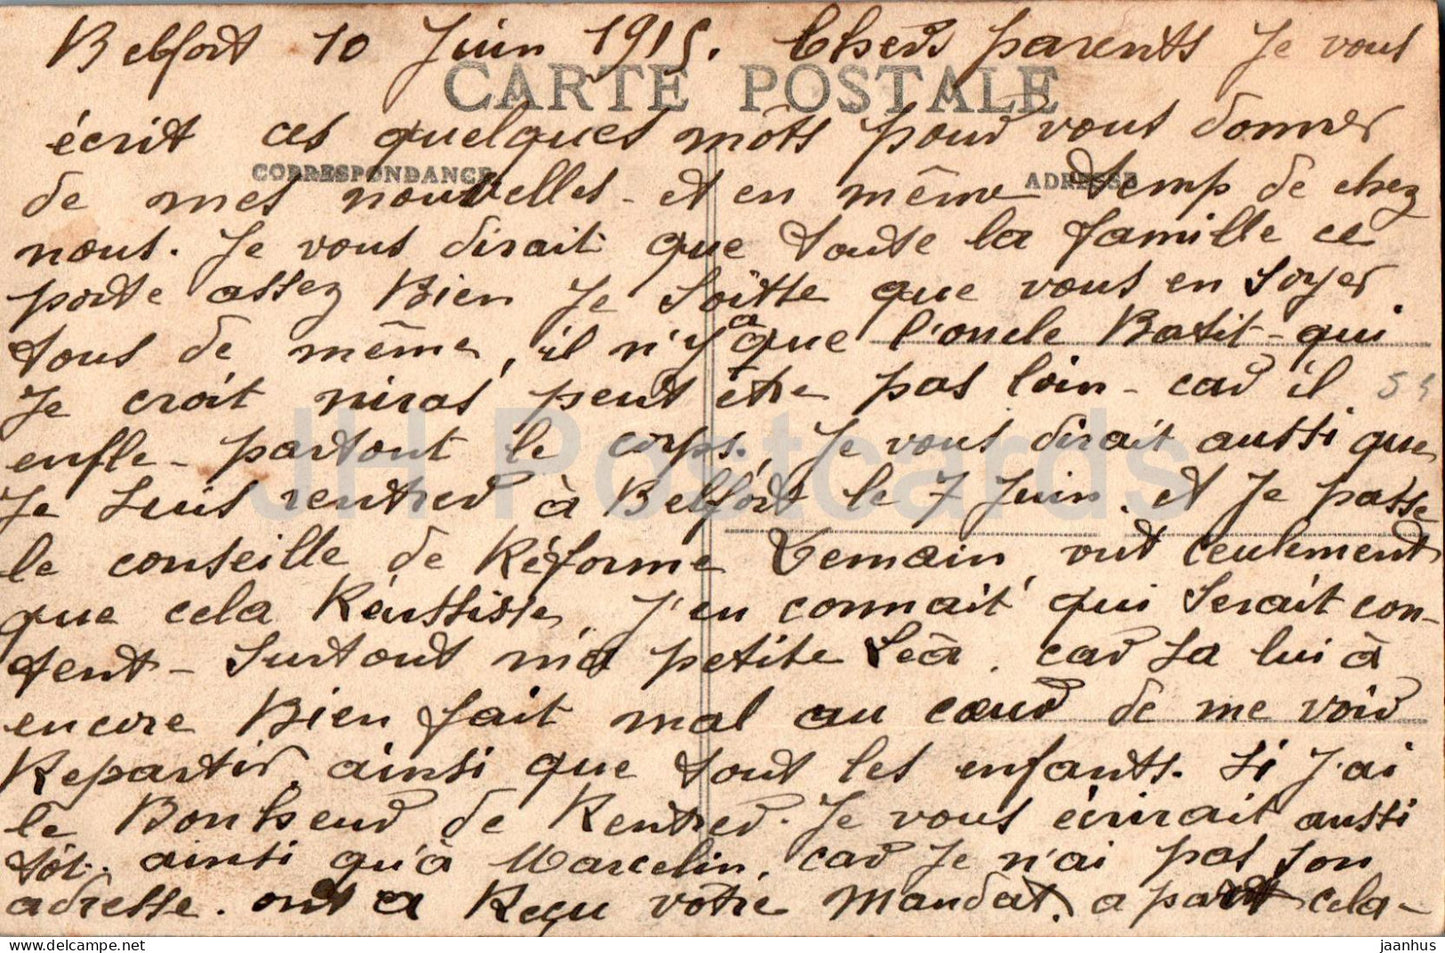 Belfort 10 Juin 1915. Chers parents Je vous
CARTE POSTALE
écrit ces quelques môts pour vous donner
CORRESPONDANCE
ADRESSE
de mes nouvelles - et en même temp de chez
nous. Je vous dirait que toute la famille ce
porte assez Bien Je Soitte que vous en soyer
tous de même, il n'y a que l'oncle Batit - qui
Je croit niras peut être pas loin - car il
54
enfle - partout le corps. Je vous dirait aussi que
Je suis rentrer à Belfort le 7 Juin. et Je passe
le conseille de Réforme Demain, seulement
que cela Réussisse, J'en connait qui Serait con-
tent - Surtout ma petite Léa. car sa lui à
encore Bien fait mal au cœur de me voir
Repartir, ainsi que tout les enfants. Si J'ai
le Bonheur de Rentrer. Je vous écrirait aussi
tôt. ainsi qu'à Marcelin, car Je n'ai pas son
adresse. ont a Reçu votre Mandat. a part cela -
JH Postcards
jaanhus ©
www.delcampe.net